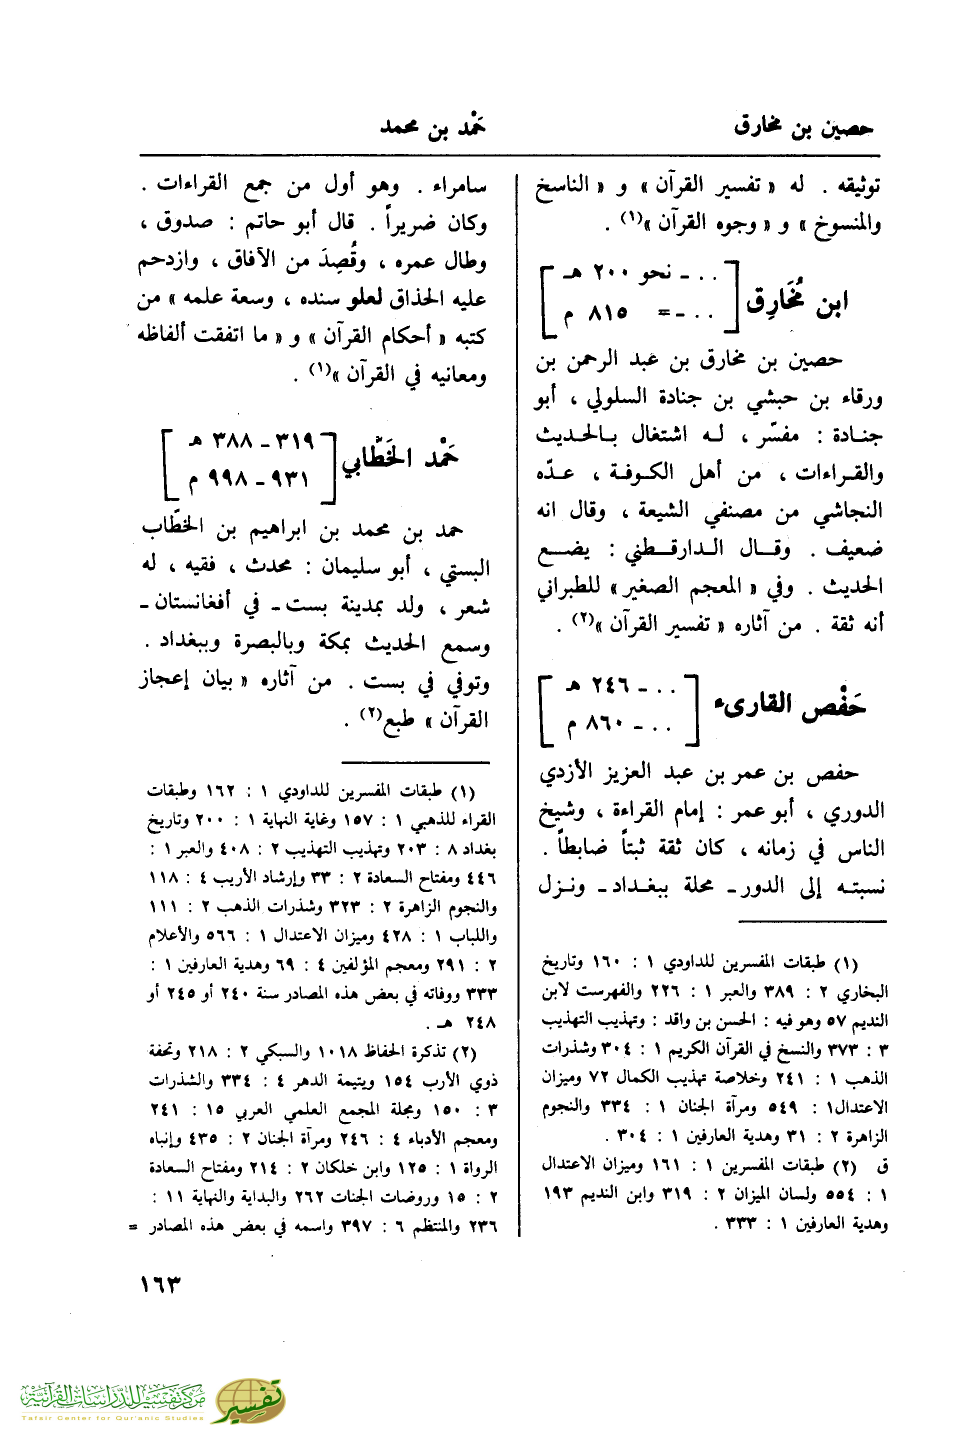 حصين بن مخارق
حَمْد بن محمد
توثيقه . له « تفسير القرآن » و « الناسخ
والمنسوخ » و « وجوه القرآن »(١) .
ابن مُخَارِق
[ . . ـ نحو ٢٠٠ هـ
. . ـ = ٨١٥ م ]
حصين بن مخارق بن عبد الرحمن بن
ورقاء بن حبشي بن جنادة السلولي ، أبو
جنـادة : مفسّر ، لـه اشتغال بـالحـديث
والقـراءات ، من أهل الكـوفـة ، عـدّه
النجاشي من مصنفي الشيعة ، وقال انه
ضعيف . وقـال الـدارقـطني : يضـع
الحديث . وفي « المعجم الصغير » للطبراني
أنه ثقة . من آثاره « تفسير القرآن »(٢) .
حَفْص القارىء
[ . . ـ ٢٤٦ هـ
. . ـ ٨٦٠ م ]
حفص بن عمر بن عبد العزيز الأزدي
الدوري ، أبو عمر : إمام القراءة ، وشيخ
الناس في زمانه ، كان ثقة ثبتاً ضابطاً .
نسبتـه إلى الدور ـ محلة ببغـداد ـ ونـزل
(١) طبقات المفسرين للداودي ١ : ١٦٠ وتاريخ
البخاري ٢ : ٣٨٩ والعبر ١ : ٢٢٦ والفهرست لابن
النديم ٥٧ وهو فيه : الحسن بن واقد : وتهذيب التهذيب
٣ : ٣٧٣ والنسخ في القرآن الكريم ١ : ٣٠٤ وشذرات
الذهب ١ : ٢٤١ وخلاصة تهذيب الكمال ٧٢ وميزان
الاعتدال١ : ٥٤٩ ومرآة الجنان ١ : ٣٣٤ والنجوم
الزاهرة ٢ : ٣١ وهدية العارفين ١ : ٣٠٤ .
ق (٢) طبقات المفسرين ١ : ١٦١ وميزان الاعتدال
١ : ٥٥٤ ولسان الميزان ٢ : ٣١٩ وابن النديم ١٩٣
وهدية العارفين ١ : ٣٣٣ .
سامراء . وهو أول من جمع القراءات .
وكان ضريراً . قال أبو حاتم : صدوق ،
وطال عمره ، وقُصِدَ من الآفاق ، وازدحم
عليه الحذاق لعلو سنده ، وسعة علمه » من
كتبه « أحكام القرآن » و « ما اتفقت ألفاظه
ومعانيه في القرآن »(١) .
حَمْد الخَطّابي
[ ٣١٩ ـ ٣٨٨ هـ
٩٣١ ـ ٩٩٨ م ]
حمد بن محمد بن ابراهيم بن الخطّاب
البستي ، أبو سليمان : محدث ، فقيه ، له
شعر ، ولد بمدينة بست ـ في أفغانستان ـ
وسمع الحديث بمكة وبالبصرة وببغداد .
وتوفي في بست . من آثاره « بيان إعجاز
القرآن » طبع(٢) .
(١) طبقات المفسرين للداودي ١ : ١٦٢ وطبقات
القراء للذهبي ١ : ١٥٧ وغاية النهاية ١ : ٢٠٠ وتاريخ
بغداد ٨ : ٢٠٣ وتهذيب التهذيب ٢ : ٤٠٨ والعبر ١ :
٤٤٦ ومفتاح السعادة ٢ : ٣٣ وإرشاد الأريب ٤ : ١١٨
والنجوم الزاهرة ٢ : ٣٢٣ وشذرات الذهب ٢ : ١١١
واللباب ١ : ٤٢٨ وميزان الاعتدال ١ : ٥٦٦ والأعلام
٢ : ٢٩١ ومعجم المؤلفين ٤ : ٦٩ وهدية العارفين ١ :
٣٣٣ ووفاته في بعض هذه المصادر سنة ٢٤٠ أو ٢٤٥ أو
٢٤٨ هـ .
(٢) تذكرة الحفاظ ١٠١٨ والسبكي ٢ : ٢١٨ وتحفة
ذوي الأرب ١٥٤ ويتيمة الدهر ٤ : ٣٣٤ والشذرات
٣ : ١٥٠ ومجلة المجمع العلمي العربي ١٥ : ٢٤١
ومعجم الأدباء ٤ : ٢٤٦ ومرآة الجنان ٢ : ٤٣٥ وإنباه
الرواة ١ : ١٢٥ وابن خلكان ٢ : ٢١٤ ومفتاح السعادة
٢ : ١٥ وروضات الجنات ٢٦٢ والبداية والنهاية ١١ :
٢٣٦ والمنتظم ٦ : ٣٩٧ واسمه في بعض هذه المصادر =
١٦٣
مركز تفسير للدراسات القرآنية
Tafsir Center for Qur'anic Studies
تفسير